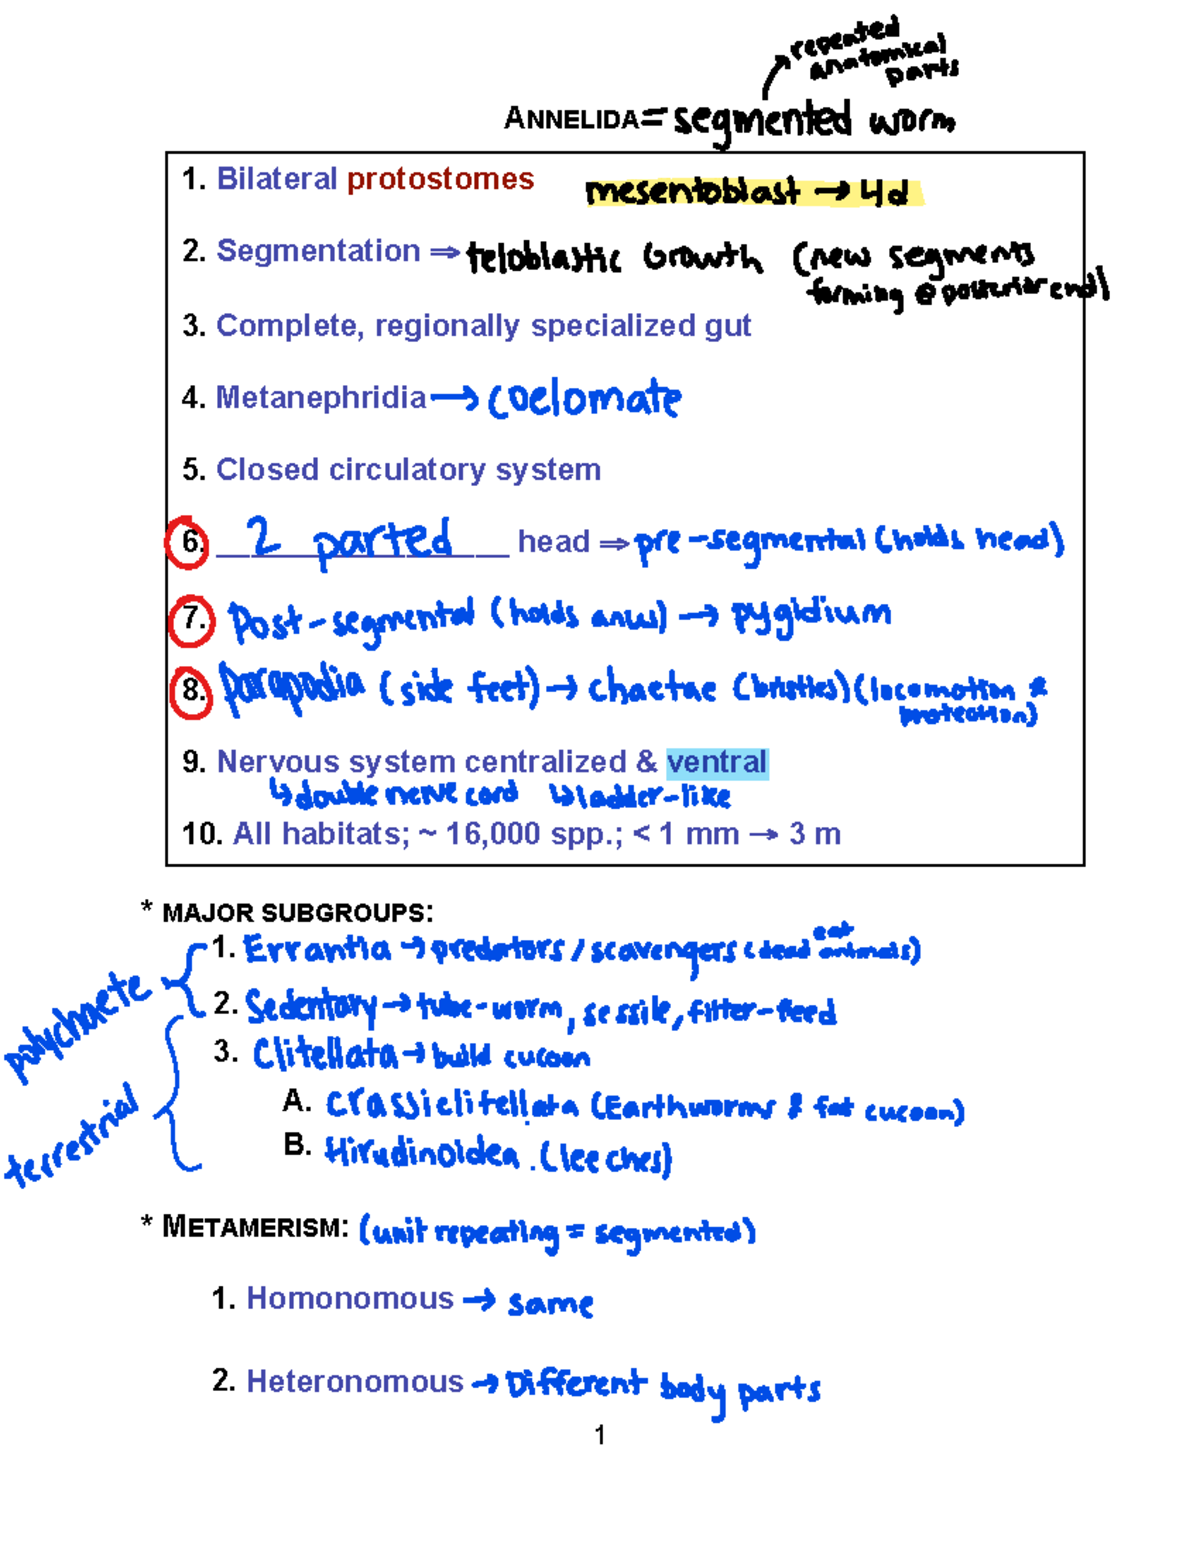 repeated
anatomical
parts
ANNELIDA = segmented worm
1. Bilateral protostomes mesentoblast → 4d
2. Segmentation ⇒ teloblastic Growth (new segments
forming @ posterior end)
3. Complete, regionally specialized gut
4. Metanephridia → coelomate
5. Closed circulatory system
6. 2 parted head ⇒ pre-segmental (holds head)
7. Post-segmental (holds anus) → pygidium
8. Parapodia (side feet) → chaetae (bristles) (locomotion &
protection)
9. Nervous system centralized & ventral
↳ double nerve cord ↳ ladder-like
10. All habitats; ~ 16,000 spp.; < 1 mm → 3 m
* MAJOR SUBGROUPS:
eat
1. Errantia → predators / scavengers (dead animals)
polychaete
2. Sedentary → tube-worm, sessile, filter-feed
3. Clitellata → build cucoon
terrestrial
A. Crassiclitellata (Earthworms & fat cucoon)
B. Hirudinoidea. (leeches)
* METAMERISM: (unit repeating = segmented)
1. Homonomous → same
2. Heteronomous → Different body parts
1